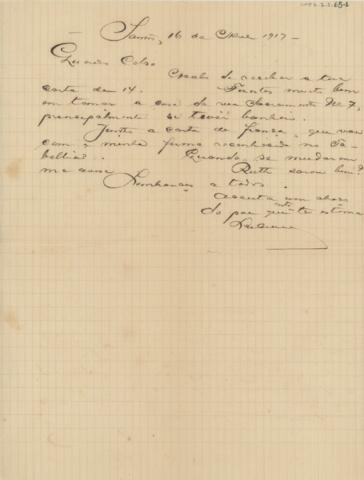 16 de 1917 —
Querido Celso
Acabo de receber a tua
carta de 14. muito bem
em tomar a casa da rua Sacramento Nº 7,
principalmente si tiver banheiro.
Junto a carta de fiança, que vae
com a minha firma reconhecida no Ta-
bellião. Quando se mudarem
me avise. Ruth sarou bem?
Lembranças a todos.
Acceita um abraço
do pae que te estima